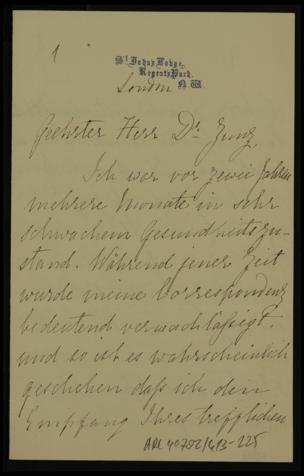 1
St John's Lodge,
Regent's Park.
N.W.
London
Geehrter Herr Dr Zunz,
Ich war vor zwei Jahren
mehrere Monate in sehr
schwachem Gesundheitszu-
stand. Während jener Zeit
wurde meine Correspondenz
bedeutend vernachläßigt.
und so ist es wahrscheinlich
geschehen daß ich den
Empfang Ihres trefflichen
ARC 4° 792/G13-225